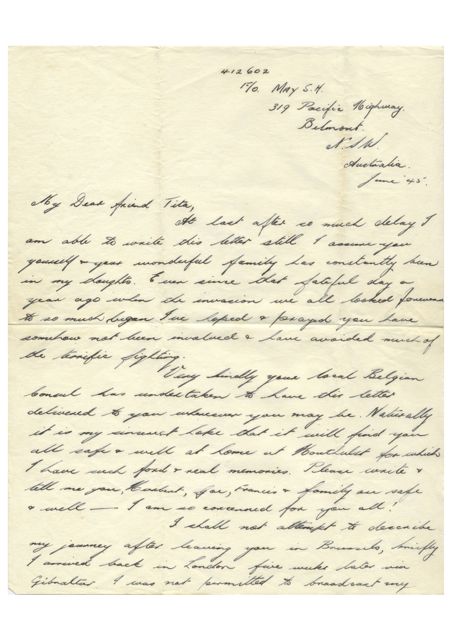 412602
F/O. May S.H.
319 Pacific Highway
Belmont.
N.S.W.
Australia.
June 45.
My Dear friend Tita,
At last after so much delay I
am able to write this letter still I assure you
yourself & your wonderful family has constantly been
in my thoughts. Ever since that fateful day a
year ago when the invasion we all looked forward
to so much began I've hoped & prayed you have
somehow not been involved & have avoided much of
the terrific fighting.
Very kindly your local Belgian
Consul has undertaken to have this letter
delivered to you wherever you may be. Naturally
it is my sincerest hope that it will find you
all safe & well at home at Houthulst for which
I have such fond & real memories. Please write &
tell me you, Herbert, Francis & family are safe
& well — I am so concerned for you all!
I shall not attempt to describe
my journey after leaving you in Brussels, briefly
I arrived back in London five weeks later via
Gibraltar I was not permitted to broadcast my